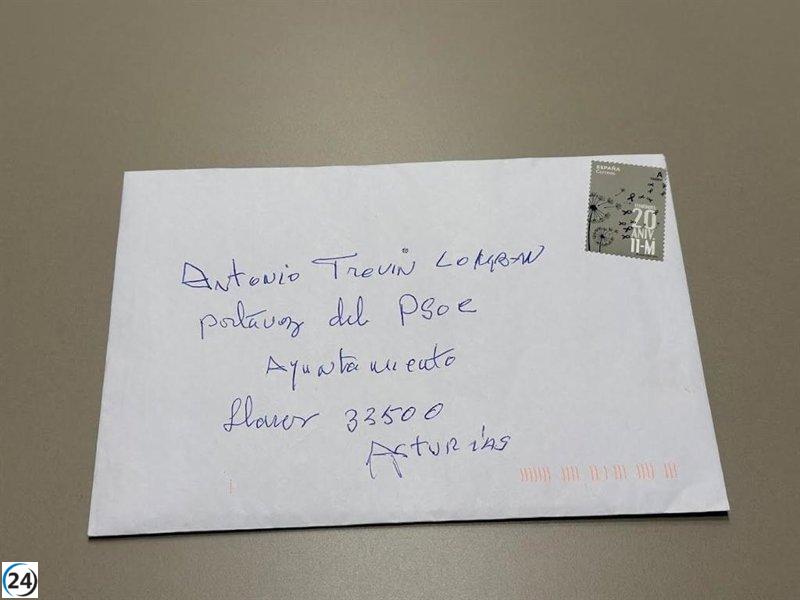 ESPAÑA
Correos
A
20
ANIV
11-M
Antonio Trevin Lomban
portavoz del PSOE
Ayuntamiento
Llanes 33500
Asturias
24